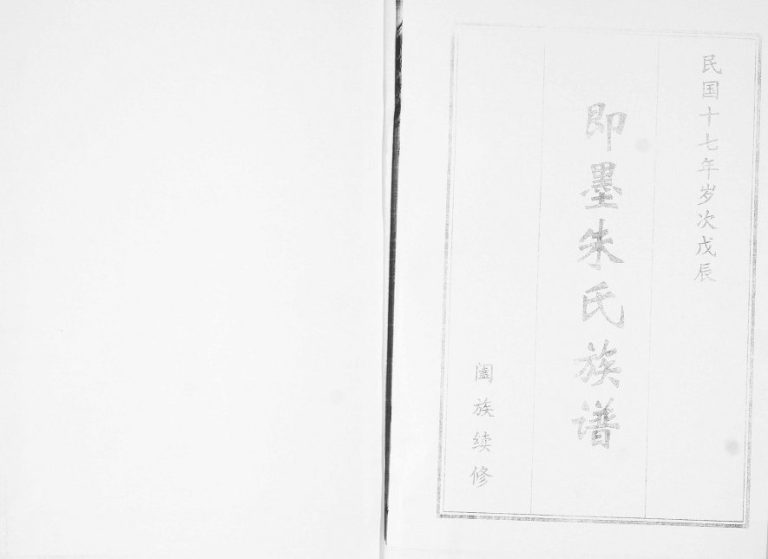 民国十七年岁次戊辰
即墨朱氏族谱
阖族续修